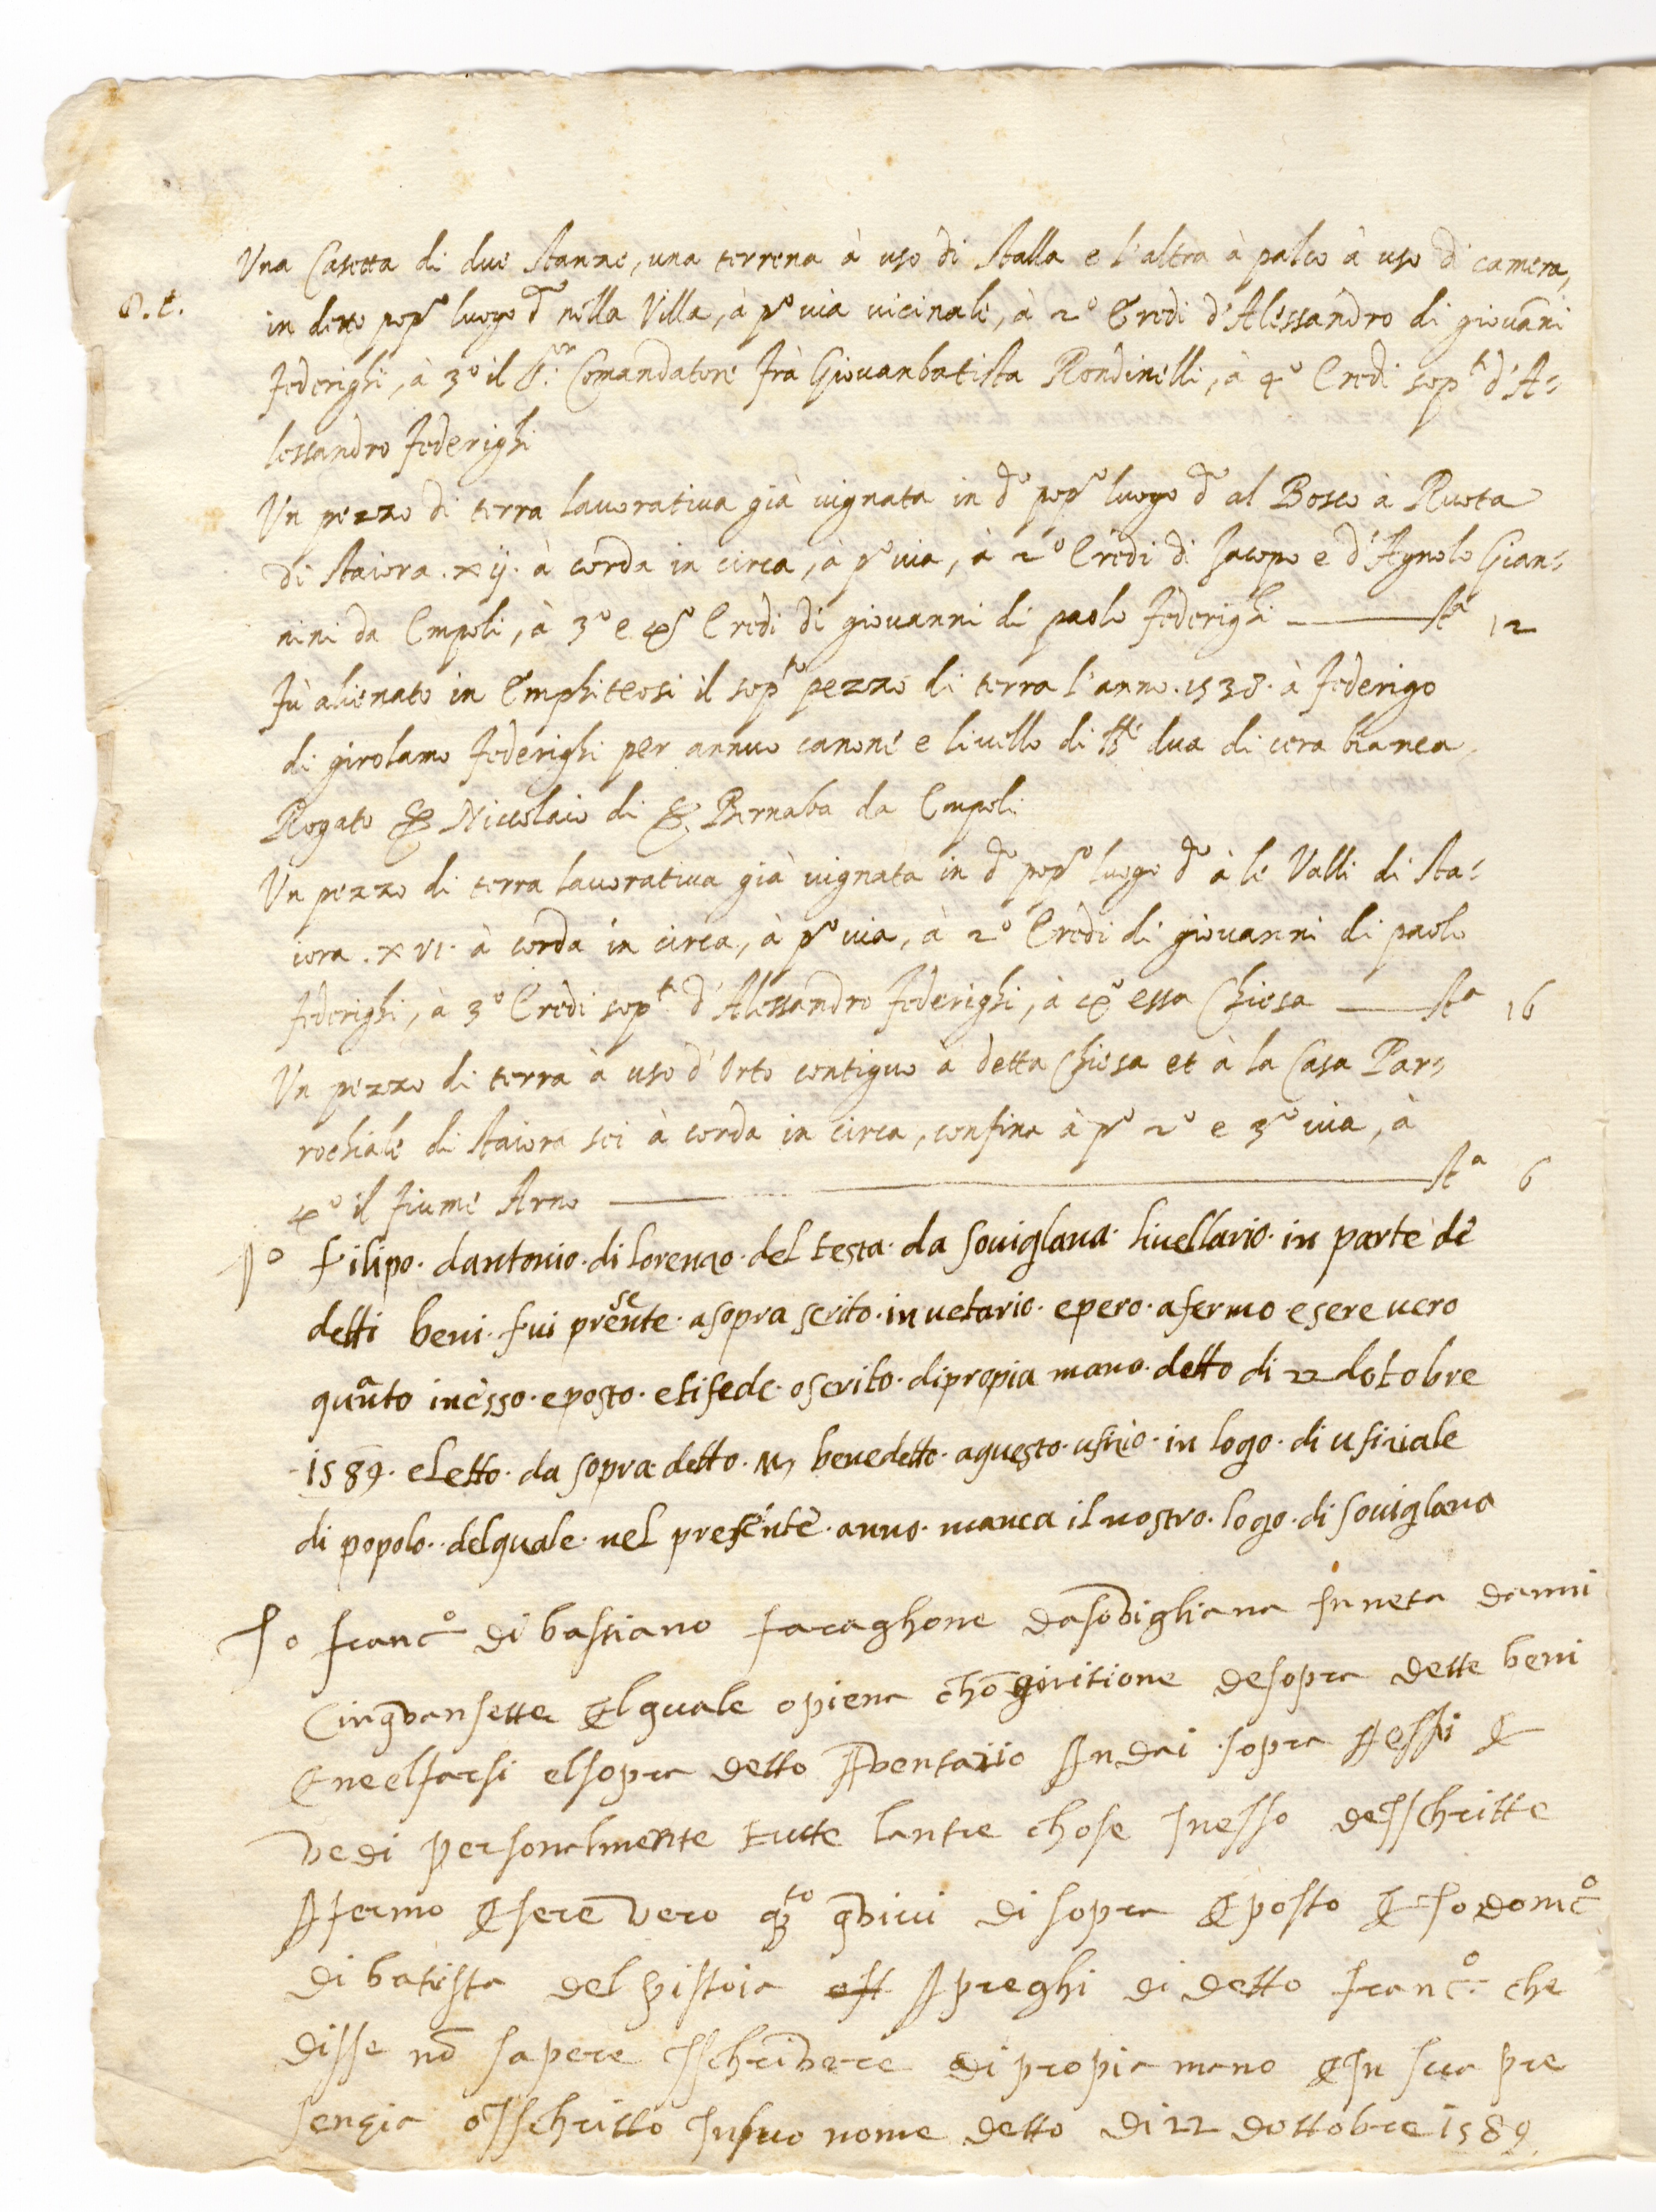 Una Casetta di due stanze, una terrena à uso di stalla e l'altra à palco à uso di camera,
in detto pop.º luogo d.º nella Villa, à p.º via vicinale, à 2.º Eredi d'Alessandro di giovāni
federighi, à 3º il S.or Comandatore frà Giovanbatista Rondinelli, à 4º Eredi sop.ti d'A=
lessandro federighi
Un pezzo di terra lavorativa già vignata in d.º pop.º luogo d.º al Bosco à Ruota
di staiora .xij. à corda in circa, à p.º via, à 2º Eredi di Jacopo e d'Agnolo Gian=
nini da Empoli, à 3º e 4º Eredi di giovanni di paolo federighi ——— st.ª 12
fù alienato in Emphiteosi il sop.to pezzo di terra l'anno .1538. à federigo
di girolamo federighi per annuo canone e livello di lb.re dua di cera bianca
Rogato Ser Niccolaio di Ser Bernaba da Empoli
Un pezzo di terra lavorativa già vignata in d.º pop.º luogo d.º à le Valli di sta=
iora .xvi. à corda in circa, à p.º via, à 2º Eredi di giovanni di paolo
federighi, à 3º Eredi sop.ti d'Alessandro federighi, à 4º essa Chiesa —— st.ª 16
Un pezzo di terra à uso d'Orto contiguo à detta Chiesa et à la Casa Par=
rochiale di staiora sei à corda in circa, confina à p.º 2º e 3º via, à
4º il fiume Arno ——— st.ª 6
Io filipo. dantonio. di lorenzo. del testa. da sovigliana. livellario. in parte dè
detti beni. fui presente. asopra scrito. invetario. epero. afermo esere vero
quanto inesso. eposto. etifede. oscrito. dipropia mano. detto di 22 dotobre
1589. eletto. da sopra detto. M. benedetto. aquesto. ufizio. in logo. di ufiziale
di popolo. delquale. nel presente. anno. manca il nostro. logo. di soviglana
Io franc.º di bastiano faraghone dasovigliana in neta danni
Cinqvansette elquale opiena chōgivitione desopra dette beni
E neelfarsi elsopra detto Aventario Andai sopra Aessi E
vedi personalmente tutte lantre chose Inesso desschritte
Afermo Esere vero q.to qvivi di sopra Eposto E Io dom.co
di batista del pistoia Apreghi di detto franc.º che
disse nō sapere Ischrivere di propia mano E In sua pre
senzia osschritto Insuo nome detto di 22 dottobre 1589